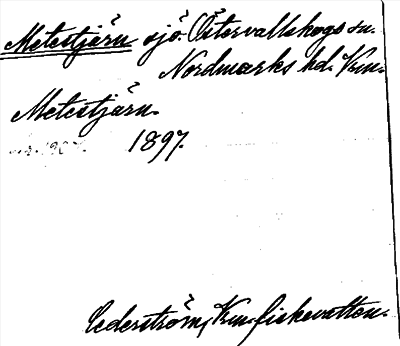 Metestjärn sjö. Östervallskogs sn.
Nordmarks hd. Vrm.
Metestjärn.
1897.
Cederström, Vrm. fiskevatten.